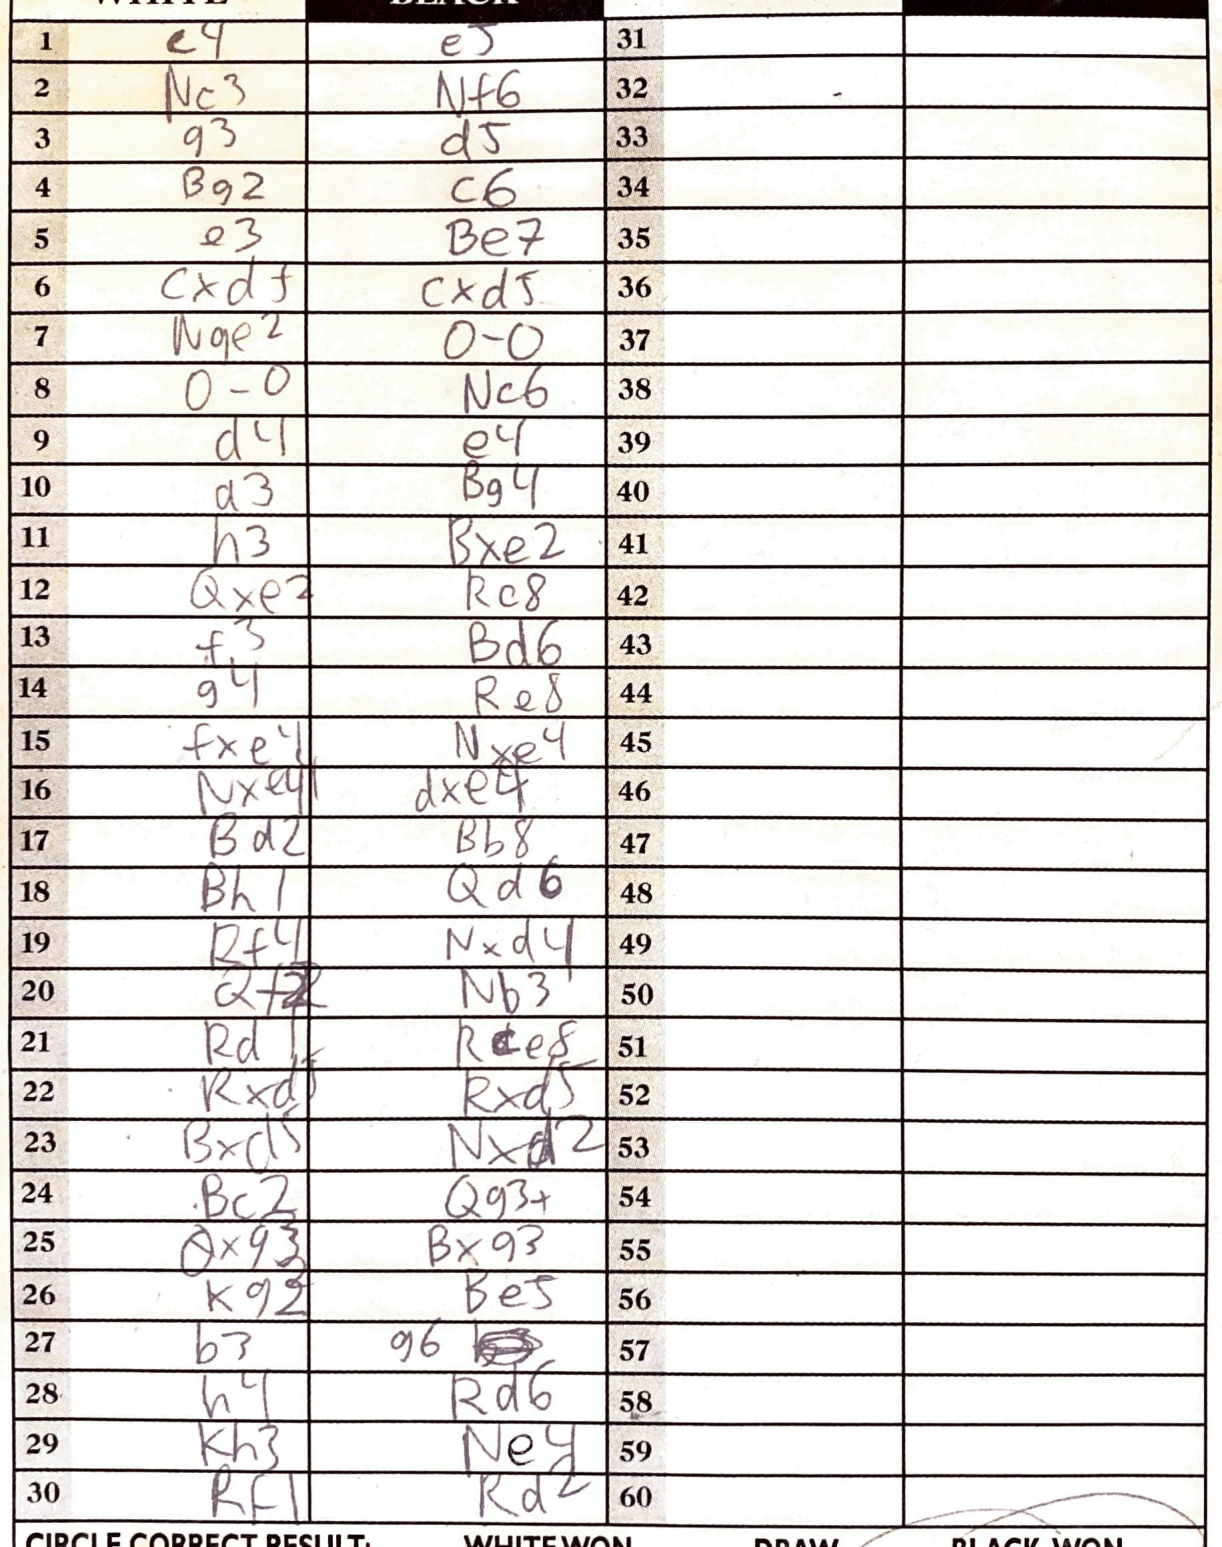 WHITE BLACK
1 c4 e5 31
2 Nc3 Nf6 32
3 g3 d5 33
4 Bg2 c6 34
5 e3 Be7 35
6 cxd5 cxd5 36
7 Nge2 0-0 37
8 0-0 Nc6 38
9 d4 e4 39
10 a3 Bg4 40
11 h3 Bxe2 41
12 Qxe2 Rc8 42
13 f3 Bd6 43
14 g4 Re8 44
15 fxe4 Nxe4 45
16 Nxe4 dxe4 46
17 Bd2 Bb8 47
18 Bh1 Qd6 48
19 Rf4 Nxd4 49
20 Qf2 Nb3 50
21 Rd1 Rce8 51
22 Rxd5 Rxd5 52
23 Bxd5 Nxd2 53
24 Bc2 Qg3+ 54
25 Qxg3 Bxg3 55
26 Kg2 Be5 56
27 b3 g6 57
28 h4 Rd6 58
29 Kh3 Ne4 59
30 Rf1 Rd2 60
CIRCLE CORRECT RESULT: WHITE WON DRAW BLACK WON